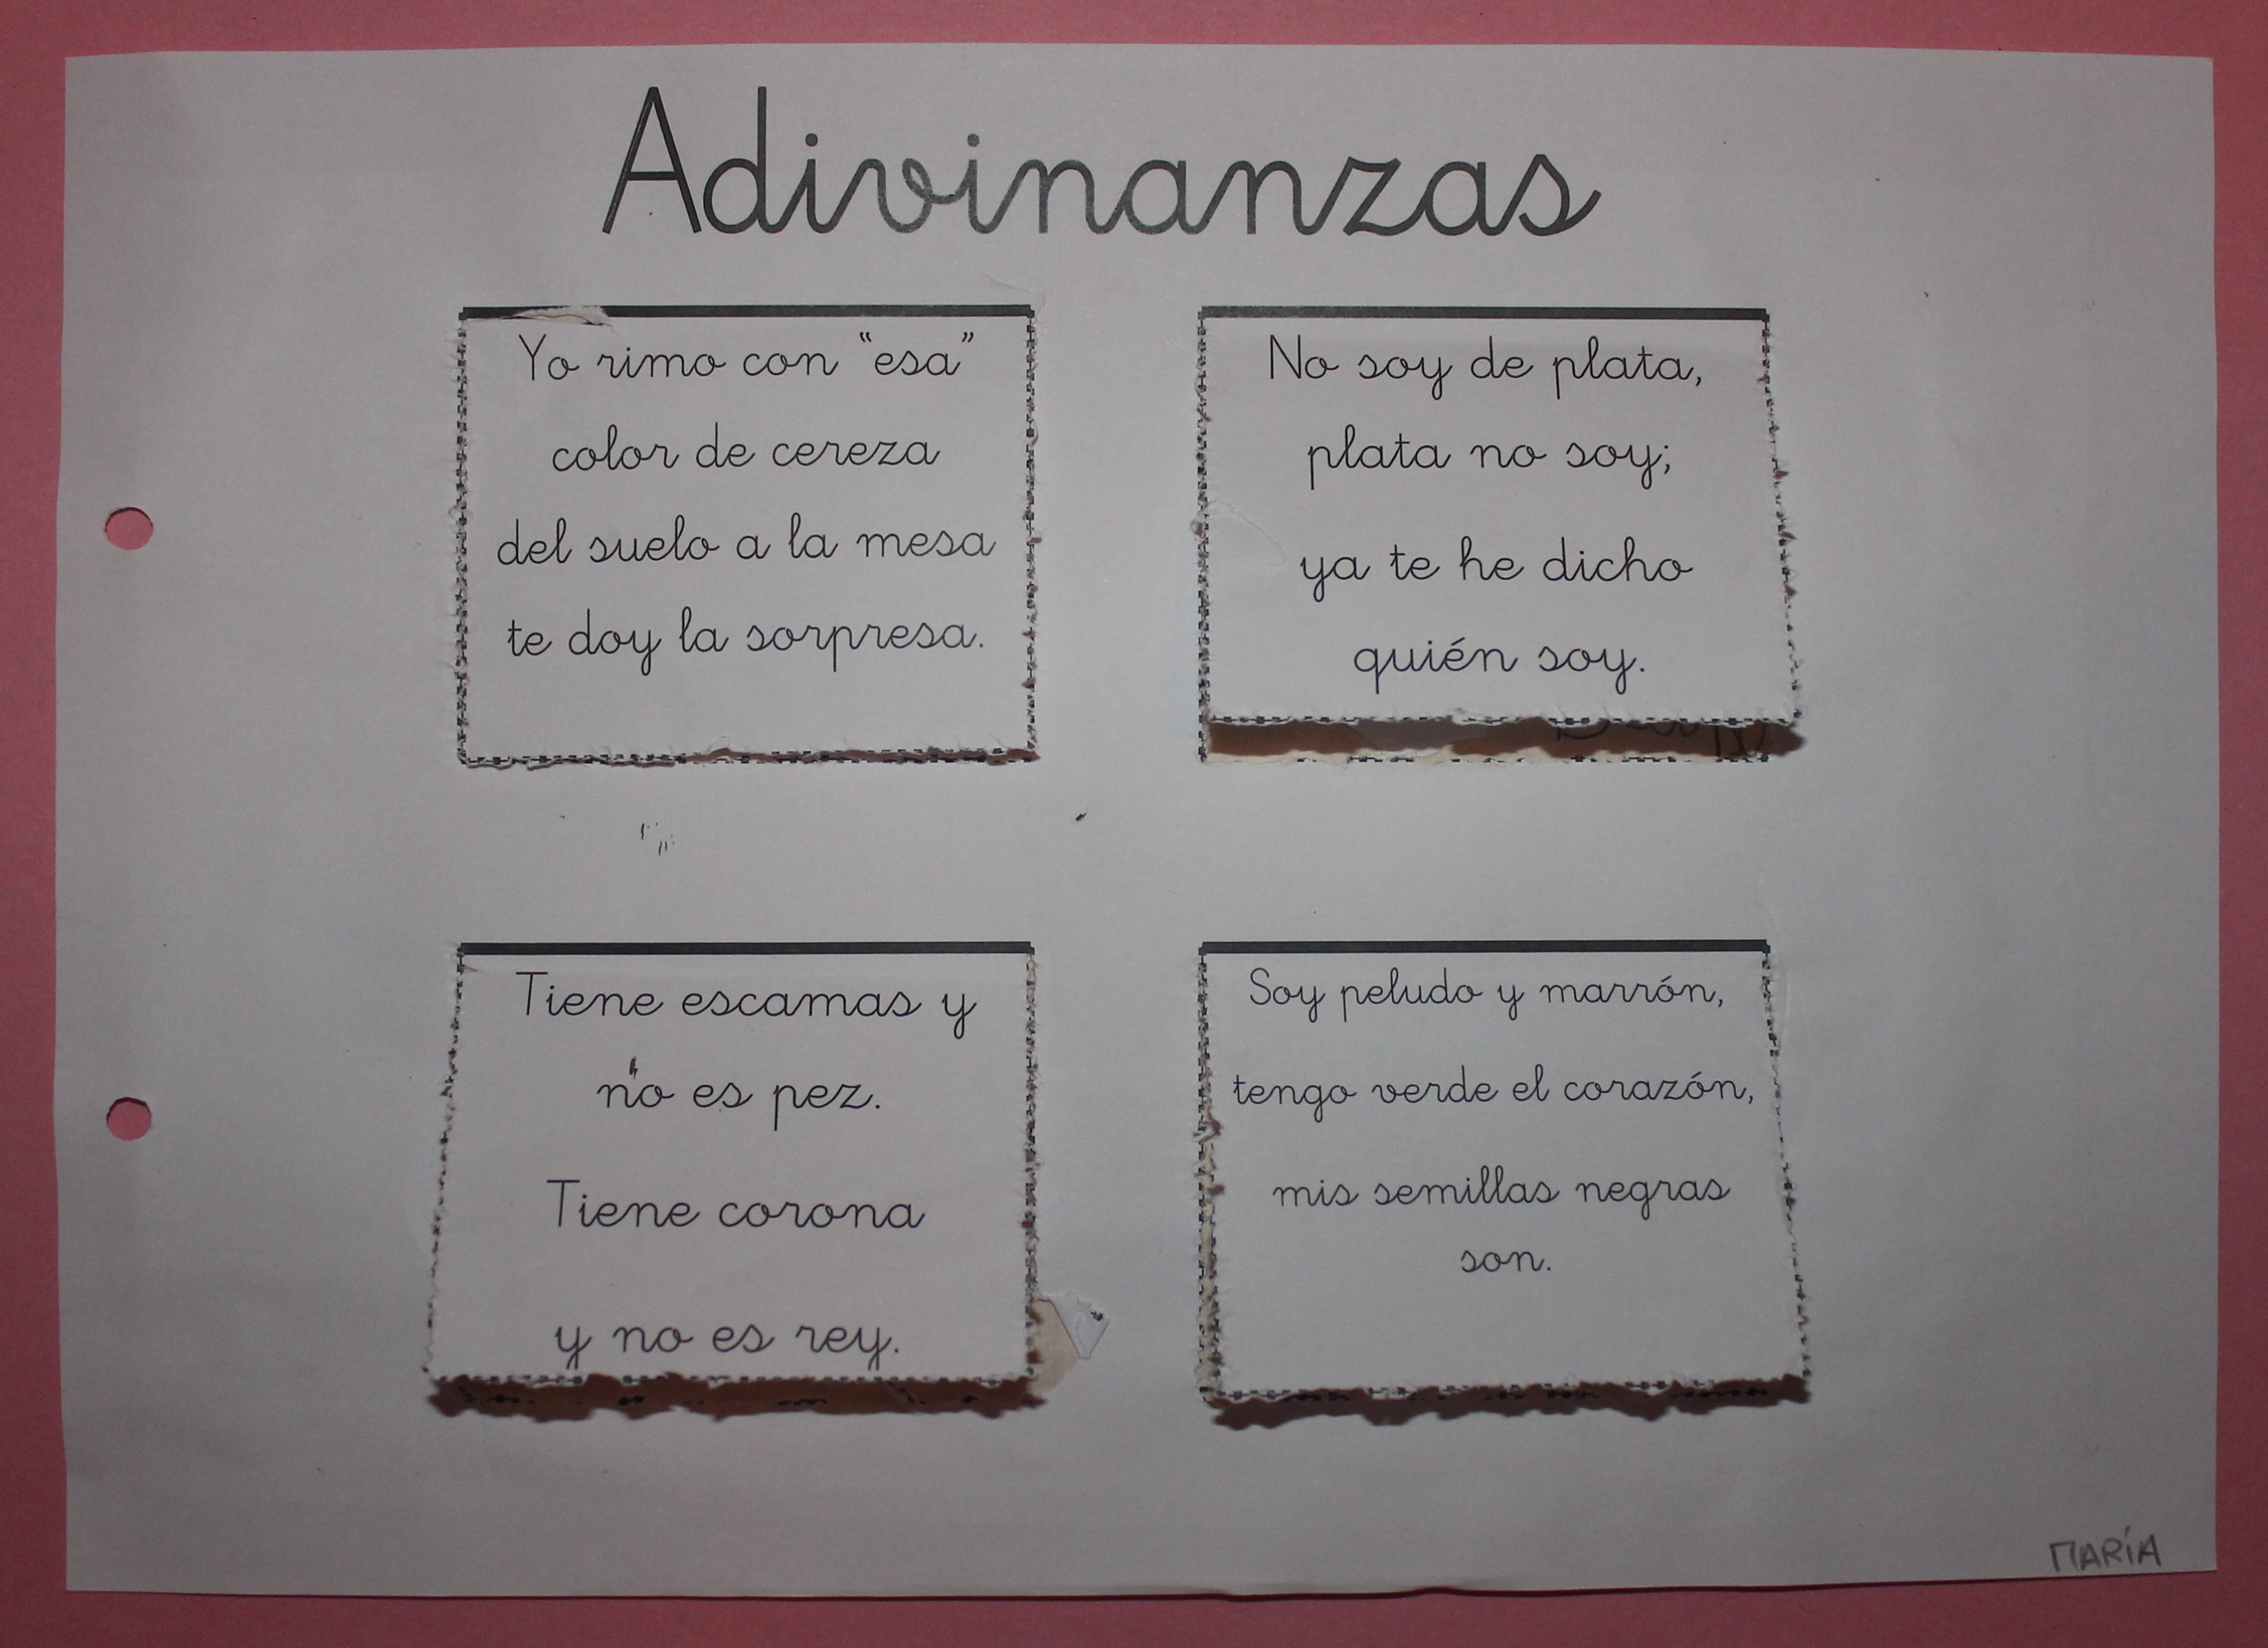 Adivinanzas
Yo rimo con “esa”
color de cereza
del suelo a la mesa
te doy la sorpresa.
No soy de plata,
plata no soy;
ya te he dicho
quién soy.
Tiene escamas y
no es pez.
Tiene corona
y no es rey.
Soy peludo y marrón,
tengo verde el corazón,
mis semillas negras
son.
MARÍA